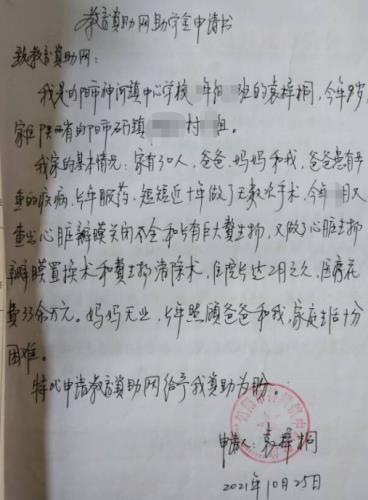 教育资助网助学金申请书
致教育资助网：
我是旬阳市神河镇中心学校 年级 班的袁梓桐，今年9岁，
家住陕西省旬阳市石门镇 村 组。
我家的基本情况：家有三口人，爸爸、妈妈和我，爸爸患有严
重的疾病，长年服药，短短近十年做了无数次手术，今年 月又
查出心脏瓣膜关闭不全和长有巨大赘生物，又做了心脏生物
瓣膜置换术和赘生物清除术，住院长达2月之久，医疗花
费33余万元。妈妈无业，长年照顾爸爸和我，家庭生活十分
困难。
特此申请教育资助网给予我资助为盼。
申请人：袁梓桐
2021年10月25日